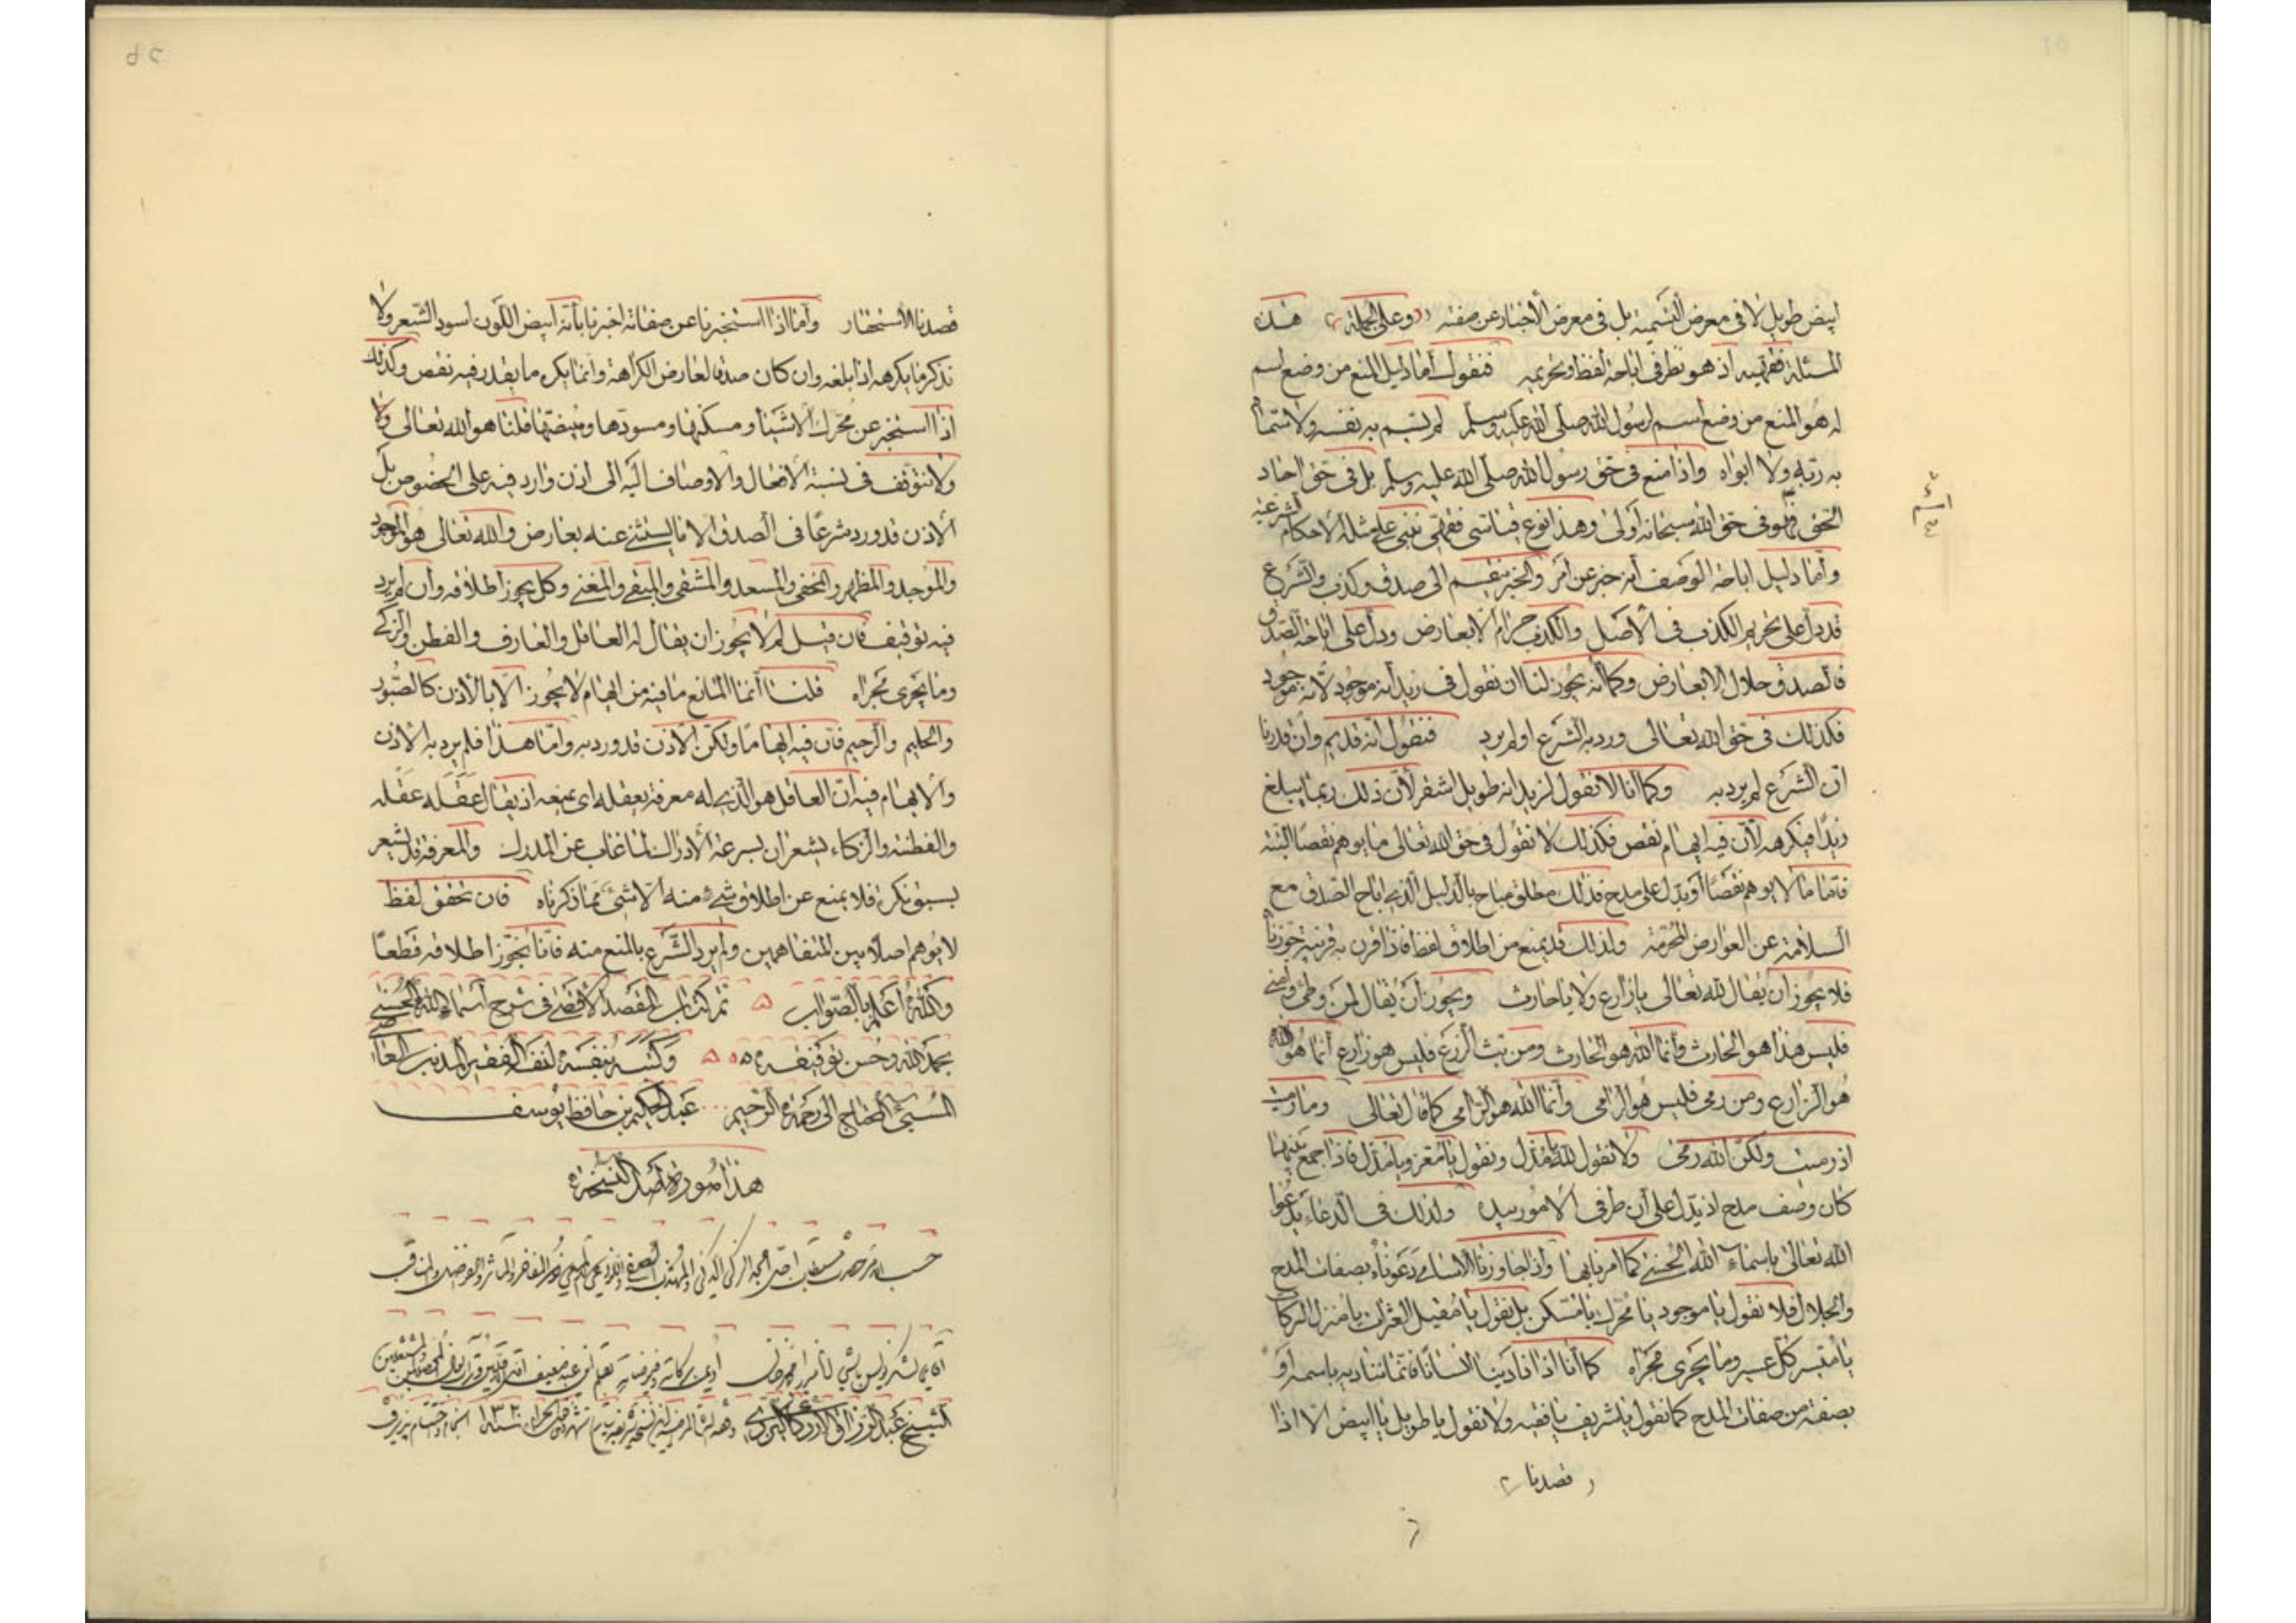 ابيض طويل لا في معرض التسمية بل في معرض الأخبار عن صفته وعلى الجملة هذه
المسئلة فقهيه اذ هو نظر فى اباحة لفظ وتحريمه فنقول أما دليل المنع من وضع اسم
له هو المنع من وضع اسم لرسول الله صلى الله عليه وسلم لم يسم به نفسه ولا سماه
به ربه ولا ابواه واذا منع في حق رسول الله صلى الله عليه وسلم بل في حق احاد
الخلق فهو في حق الله سبحانه أولى وهذا نوع قياس فقهي تبنى على مثله الاحكام الشرعية
وأما دليل اباحة الوصف أنه خبر عن أمر والخبر ينقسم الى صدق وكذب والشرع
قد دل على تحريم الكذب في الأصل والكذب حرام الا بعارض ودل على اباحة الصدق
فالصدق حلال الا بعارض وكما أنه يجوز لنا ان نقول في زيد أنه موجود لأنه موجود
فكذلك في حق الله تعالى ورد به الشرع او لم يرد فنقول انه قديم وان قدرنا
ان الشرع لم يرد به وكما أنا لا نقول لزيد انه طويل اشقر لأن ذلك ربما يبلغ
زيدا فيكرهه لأن فيه ايهام نقص فكذلك لا نقول في حق الله تعالى ما يوهم نقصا البتة
فاما ما لا يوهم نقصا أو يدل على مدح فذلك مطلق مباح بالدليل الذي اباح الصدق مع
السلامة عن العوارض المحرمة ولذلك قد يمنع من اطلاق لفظ فاذا قرن به قرينة جوزنا
فلا يجوز ان يقال لله تعالى يا زارع ولا يا حارث ويجوز أن يقال لمن وطئ وامنى
فليس هذا هو الحارث وأنما الله هو الحارث ومن بث الزرع فليس هو زارع أنما هو الله
هو الزارع ومن رمى فليس هو الرامى وأنما الله هو الرامي كما قال تعالى وما رميت
اذ رميت ولكن الله رمى ولا نقول لله يا مذل ونقول يا معز ويا مذل فاذا جمع بينهما
كان وصف مدح اذ يدل على أن طرفي الامور بيده ولذلك في الدعاء يدعوا
الله تعالى باسماء الله الحسنى كما امرنا بها واذا جاوزنا الاسامي دعوناه بصفات المدح
والجلال فلا نقول يا موجود يا محرك يا مسكن بل نقول يا مقيل العثرات يا منزل البركات
يا ميسر كل عسير وما يجرى مجراه كما أنا اذا نادينا انسانا فانما نناديه باسمه أو
بصفة من صفات المدح كما نقول يا شريف يا فقيه ولا نقول يا طويل يا ابيض الا اذا
قصدنا
قصدنا الاستحقار وأما اذا استخبرنا عن صفاته اخبرنا بأنه ابيض اللون اسود الشعر ولا
نذكر ما يكرهه اذا بلغه وان كان صدقا لعارض الكراهة وانما يكره ما يقدر فيه نقص وكذلك
اذا استخبر عن محرك الاشياء ومسكنها ومسودها ومبيضها قلنا هو الله تعالى ولا
ولا نتوقف فى نسبة الافعال والاوصاف اليه الى اذن وارد فيه على الخصوص بل
الاذن قد ورد شرعا فى الصدق الا ما يستثنى عنه بعارض والله تعالى هو الموجود
والموجد والمظهر والمخفى والمسعد والمشقى والمبقى والمغنى وكل يجوز اطلاقه وأن لم يرد
فيه توقيف فان قيل لم لا يجوز ان يقال له العاقل والعارف والفطن والزكى
وما يجرى مجراه قلنا أنما المانع ما فيه من ايهام لا يجوز الا بالاذن كالصبور
والحليم والرحيم فان فيه ايهاما ولكن الأذن قد ورد به وأما هذا فلم يرد به الاذن
والايهام فيه ان العاقل هو الذي له معرفة يعقله اى يمنعه اذ يقال عقله عقله
والفطنة والزكاء يشعران بسرعة الأدراك لما غاب عن المدرك والمعرفة قد تشعر
بسبق نكرة فلا يمنع عن اطلاق شئ منه الا شئ مما ذكرناه فان تحقق لفظ
لا يوهم اصلا بين المتفاهمين ولم يرد الشرع بالمنع منه فأنا نجوز اطلاقه قطعا
والله أعلم بالصواب تم كتاب المقصد الأقصى في شرح أسماء الله الحسنى
بحمد الله وحسن توفيقه وكتبه بنفسه لنفسه الفقير المذنب العاصى
المسيئ المحتاج الى رحمة الرحيم عبد الحكيم بن حافظ يوسف
هذا صورة اصل النسخة
الشيخ عبد الرزاق